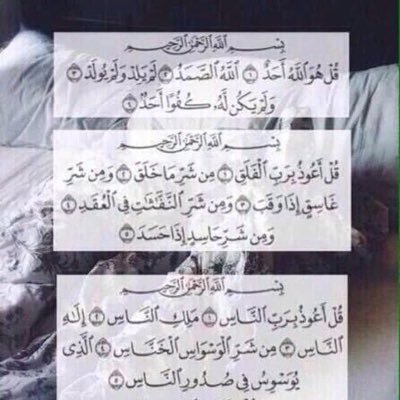 بِسْمِ اللَّهِ الرَّحْمَٰنِ الرَّحِيمِ
قُلْ هُوَ اللَّهُ أَحَدٌ ١ اللَّهُ الصَّمَدُ ٢ لَمْ يَلِدْ وَلَمْ يُولَدْ ٣
وَلَمْ يَكُن لَّهُ كُفُوًا أَحَدٌ ٤
بِسْمِ اللَّهِ الرَّحْمَٰنِ الرَّحِيمِ
قُلْ أَعُوذُ بِرَبِّ الْفَلَقِ ١ مِن شَرِّ مَا خَلَقَ ٢ وَمِن شَرِّ
غَاسِقٍ إِذَا وَقَبَ ٣ وَمِن شَرِّ النَّفَّاثَاتِ فِي الْعُقَدِ ٤
وَمِن شَرِّ حَاسِدٍ إِذَا حَسَدَ ٥
بِسْمِ اللَّهِ الرَّحْمَٰنِ الرَّحِيمِ
قُلْ أَعُوذُ بِرَبِّ النَّاسِ ١ مَلِكِ النَّاسِ ٢ إِلَٰهِ
النَّاسِ ٣ مِن شَرِّ الْوَسْوَاسِ الْخَنَّاسِ ٤ الَّذِي
يُوَسْوِسُ فِي صُدُورِ النَّاسِ ٥